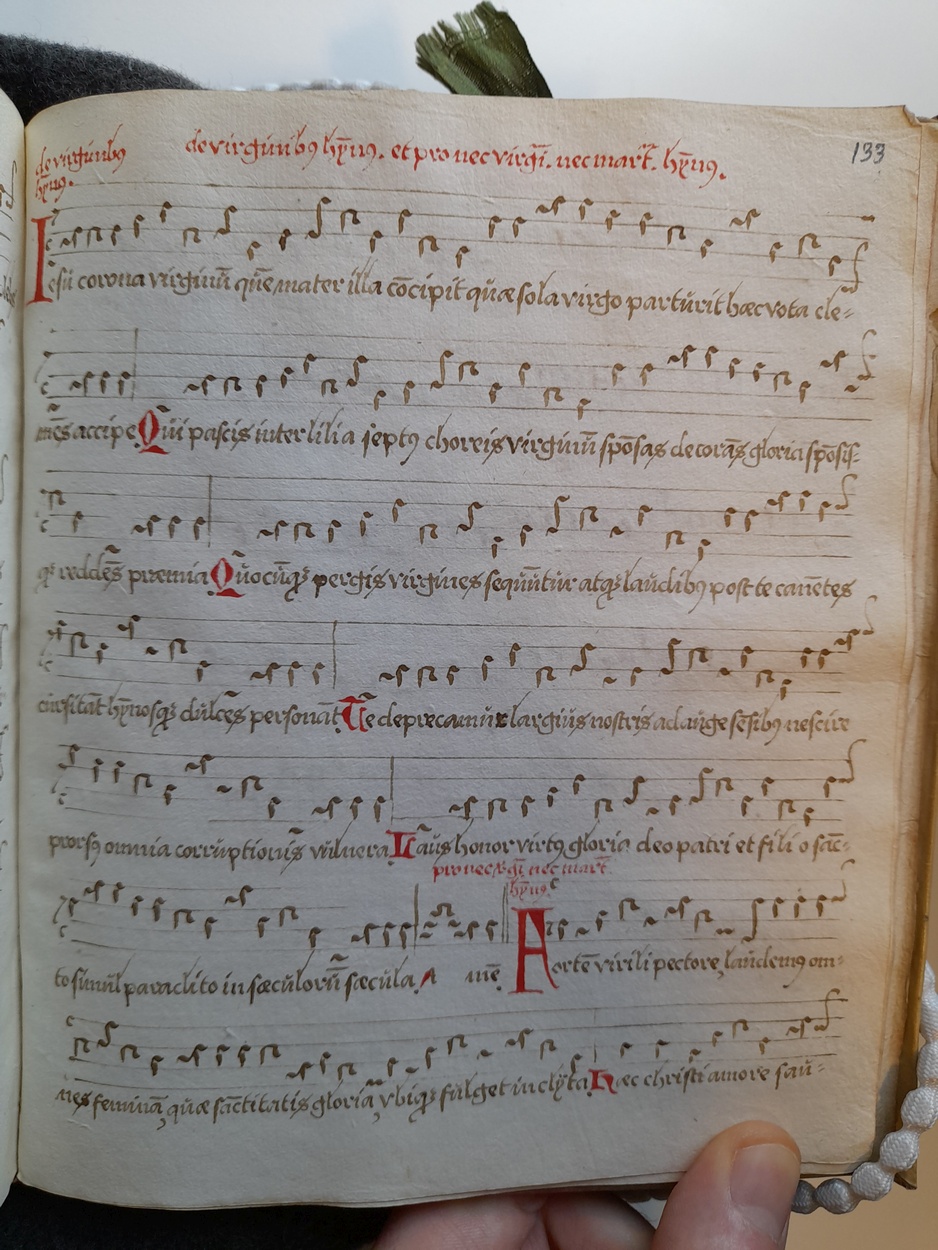 de virginibꝯ
hȳnꝯ.
de virginibꝯ hȳnꝯ. et pro nec virgĩ. nec mart̃. hȳnꝯ.
133
Iesu corona virginũ quẽ mater illa cõcipit quæ sola virgo parturit hæc vota cle-
mẽs accipe Qui pascis inter lilia septꝯ choreis virginũ spõsas decorãs gloria spõsis-
qꝫ reddẽs præmia Quocũqꝫ pergis virgines sequũtur atqꝫ laudibꝯ post te canẽtes
cursitãt hȳnosqꝫ dulces personãt Te deprecamur largius nostris adauge sẽsibꝯ nescire
prorsꝯ omnia corruptionis vulnera Laus honor virtꝯ gloria deo patri et filio sãc-
pro nec vgĩ nec mart̃
hȳnꝯ
to simul paraclito in sæculorũ sæcula A mẽ Fortẽ virili pectore, laudemꝯ om-
nes feminã, quæ sãctitatis gloria, vbiqꝫ fulget inclyta Hæc christi amore sau-